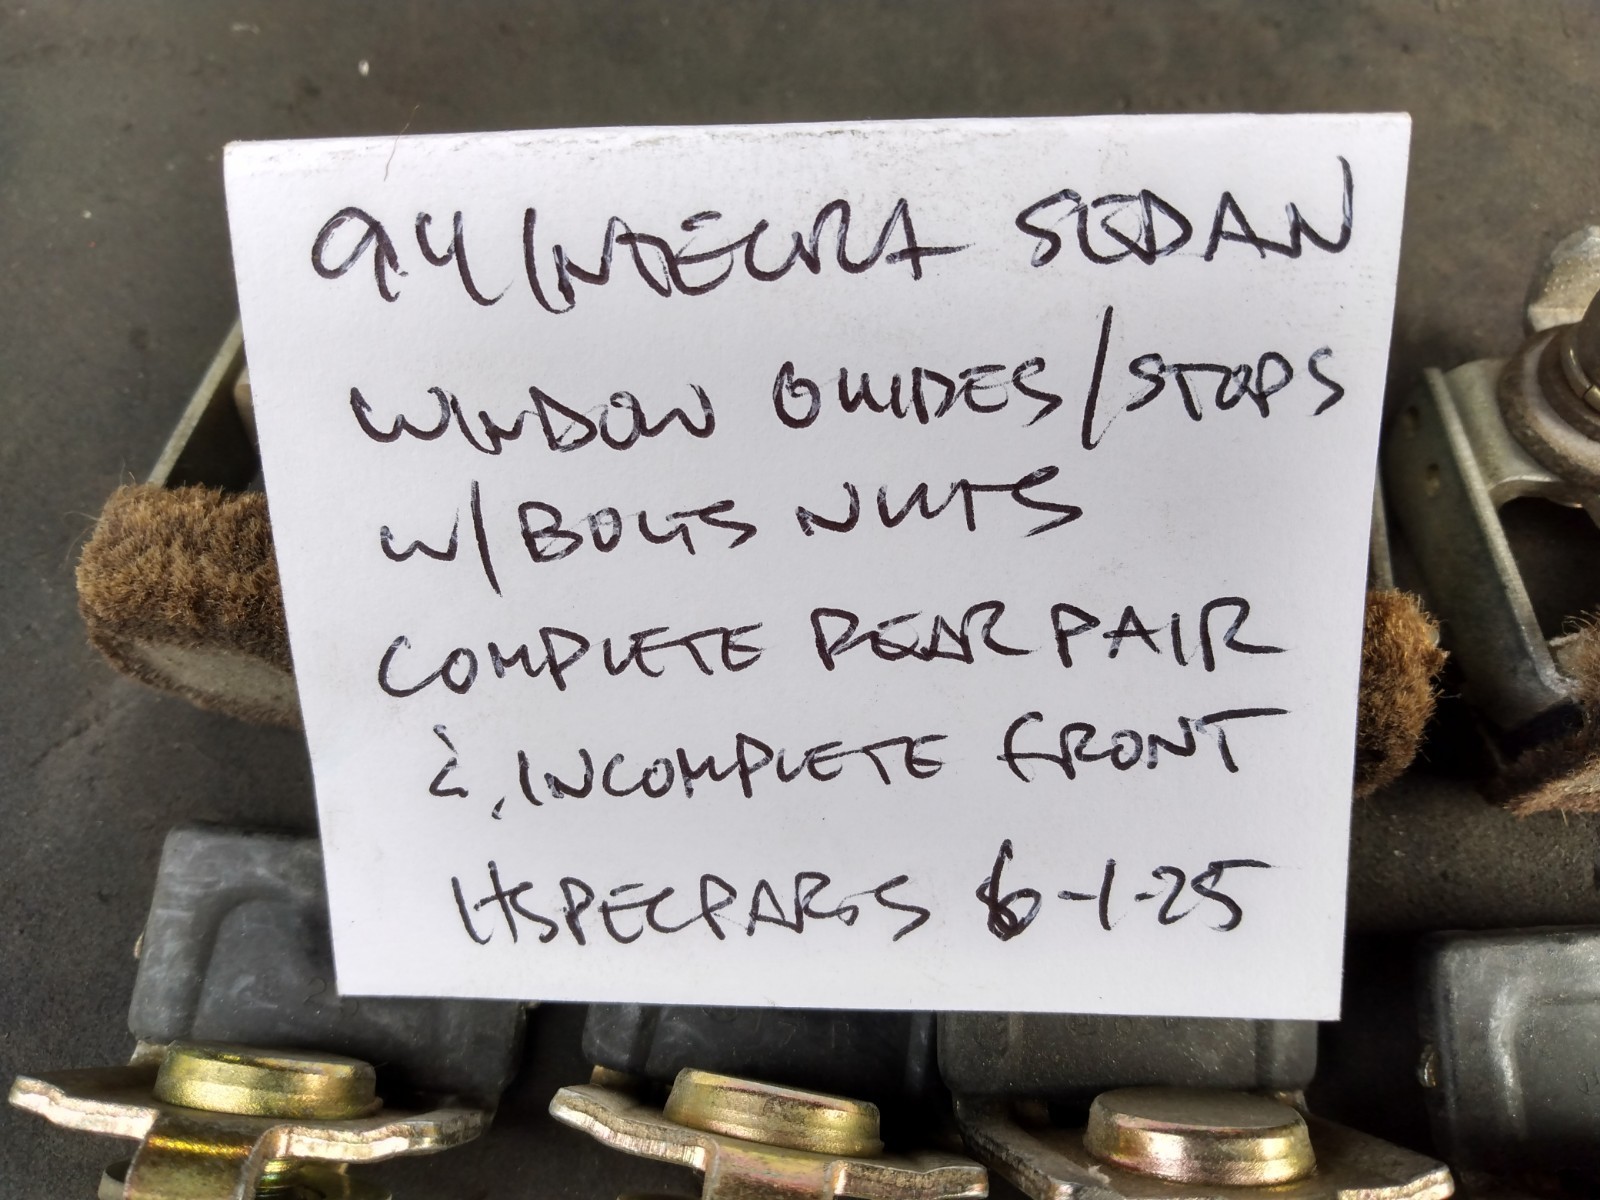 94 INTEGRA SEDAN
WINDOW GUIDES/STOPS
W/BOLTS NUTS
COMPLETE REAR PAIR
& INCOMPLETE FRONT
HSPECPARTS 6-1-25